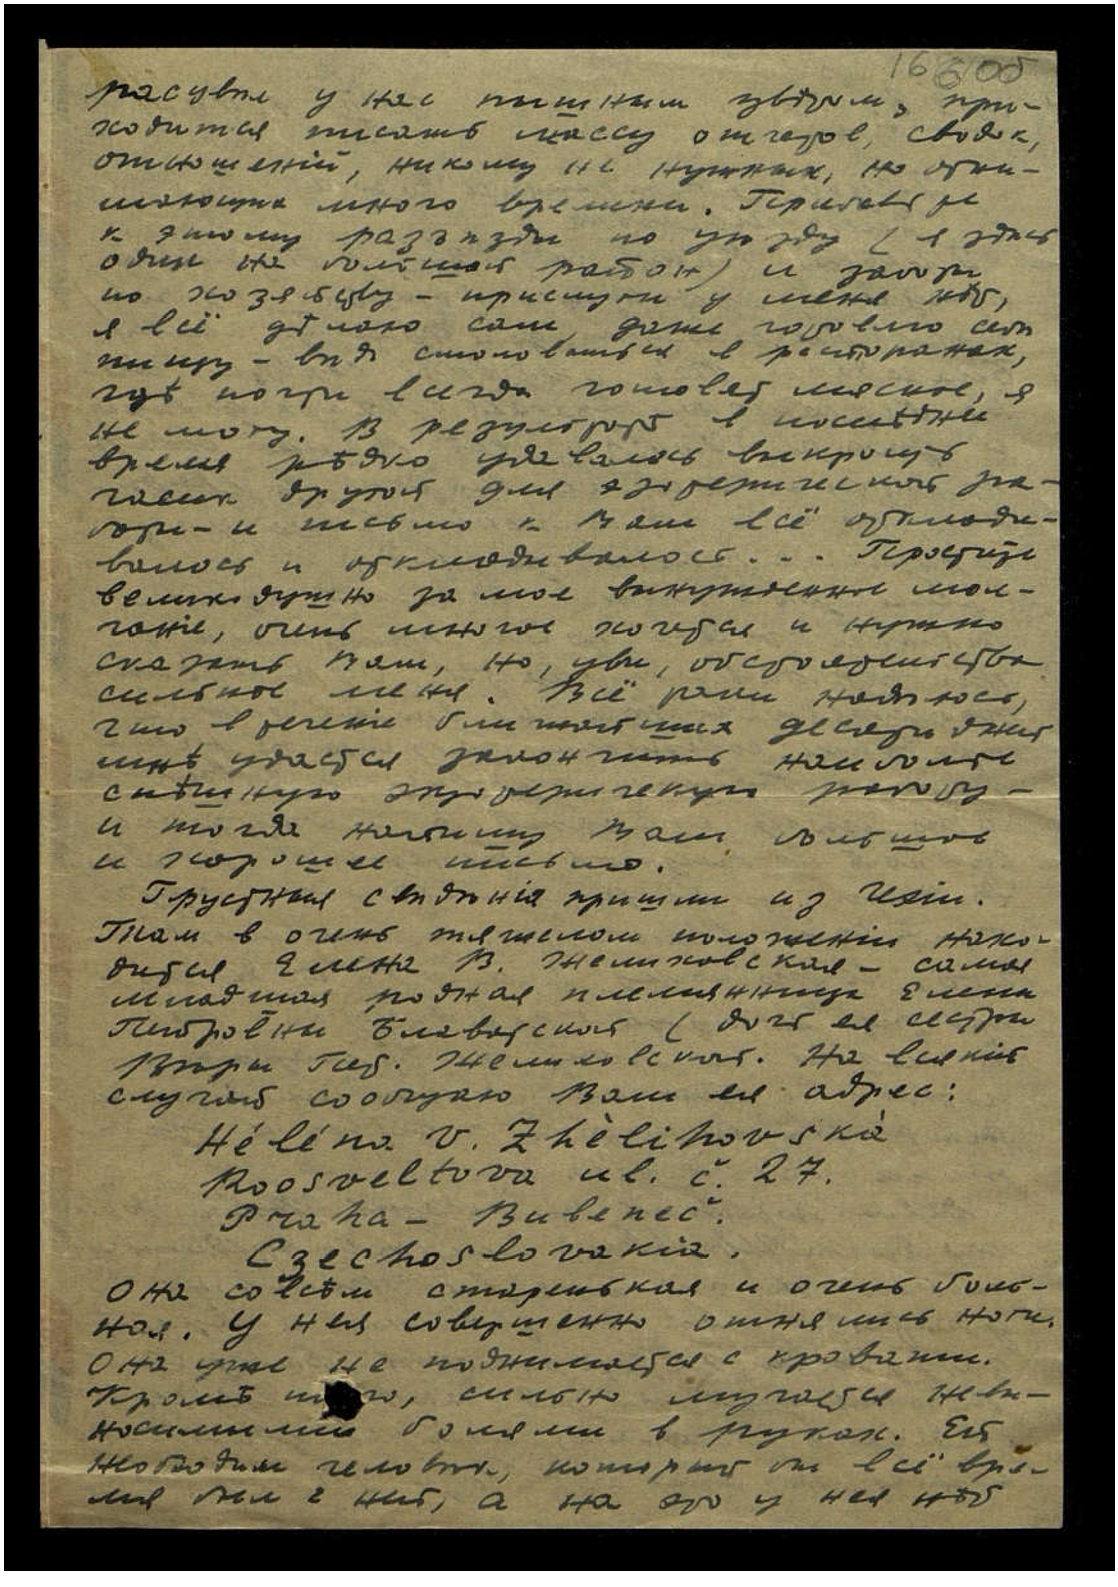 расцвел у нас пышным цвѣтом, при-
ходится писать массу отчетов, сводок,
отношеній, никому не нужных, но отни-
мающих много времени. Прибавьте
к этому разъѣзды по уѣзду (я здѣсь
один на большой район) и заботы
по хозяйству – прислуги у меня нѣт,
я всё дѣлаю сам, даже готовлю себѣ
пищу – вѣдь столоваться в ресторанах,
гдѣ почти всегда готовят мясное, я
не могу. В результатѣ в послѣднее
время рѣдко удавалось выкроить
часик другой для эзотерической ра-
боты – и письмо к Вам всё отклады-
валось и откладывалось... Простите
великодушно за мое вынужденное мол-
чаніе, очень многое хочется и нужно
сказать Вам, но, увы, обстоятельства
сильнѣе меня. Всё же надѣюсь,
что в теченіе ближайших десяти дней
мнѣ удастся закончить наиболѣе
спѣшную эзотерическую работу –
и тогда напишу Вам большое
и хорошее письмо.
Грустныя свѣдѣнія пришли из Чехіи.
Там в очень тяжелом положеніи нахо-
дится Елена В. Желиховская – самая
младшая родная племянница Елены
Петровны Блаватской (дочь ея сестры
Вѣры Пет. Желиховской. На всякій
случай сообщаю Вам ея адрес:
Héléna V. Zhèlihovská
Roosveltova ul. č. 27.
Praha – Bubeneč.
Czechoslovakia.
Она совсѣм старенькая и очень боль-
ная. У нея совершенно отнялись ноги.
Она уже не поднимается с кровати.
Кромѣ того, сильно мучается невы-
носимыми болями в руках. Ей
необходим человѣк, который бы всё вре-
мя был с ней, а на это у нея нѣт